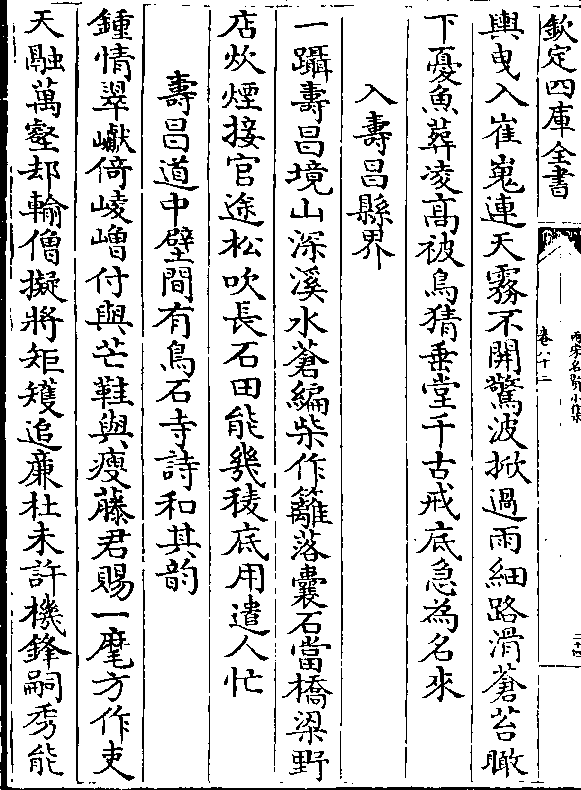 欽定四庫全書
兩宋名賢小集
卷八十二
輿曳入崔嵬連天霧不開驚波掀過雨細路滑蒼苔瞰
下憂魚葬凌高被鳥猜垂堂千古戒底急為名來
入壽昌縣界
一躡壽昌境山深溪水蒼編柴作籬落囊石當橋梁野
店炊煙接官途松吹長石田能幾稜底用遣人忙
壽昌道中壁間有烏石寺詩和其韵
鍾情翠巘倚崚嶒付與芒鞋與瘦藤君賜一麾方作吏
天融萬壑却輸僧擬將矩矱追廉杜未許機鋒嗣秀能